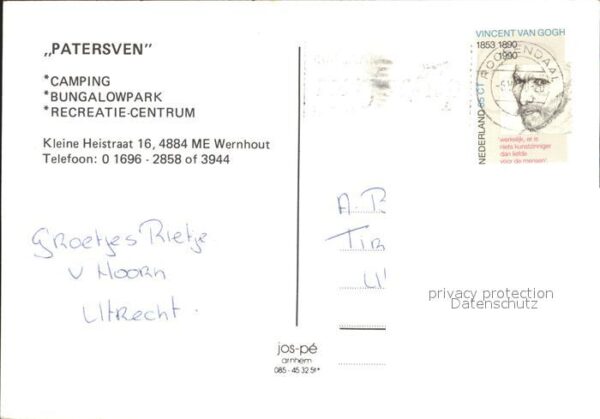 „PATERSVEN”
*CAMPING
*BUNGALOWPARK
*RECREATIE-CENTRUM
Kleine Heistraat 16, 4884 ME Wernhout
Telefoon: 0 1696 - 2858 of 3944
Groetjes Rietje
v Hoorn
Utrecht.
VINCENT VAN GOGH
1853 1890
1990
ROOSENDAAL
NEDERLAND CT
'werkelijk, er is
niets kunstzinniger
dan liefde
voor de mensen'.
A.
privacy protection
Datenschutz
jos-pé
arnhem
085 - 45 32 51*